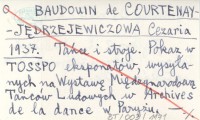 BAUDOUIN de COURTENAY-
-JĘDRZEJEWICZOWA Cezaria
1937. Tańce i stroje. Pokaz w
TOSSPO eksponatów, wysyła-
nych na Wystawę Międzynarodową
Tańców Ludowych w Archives
de la dance w Paryżu.